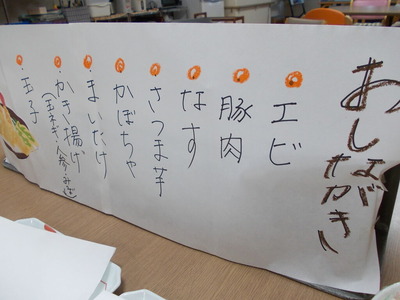 おしながき
エビ
豚肉
なす
さつま芋
かぼちゃ
まいたけ
かき揚げ
(玉ネギ、人参、みつば)
玉子